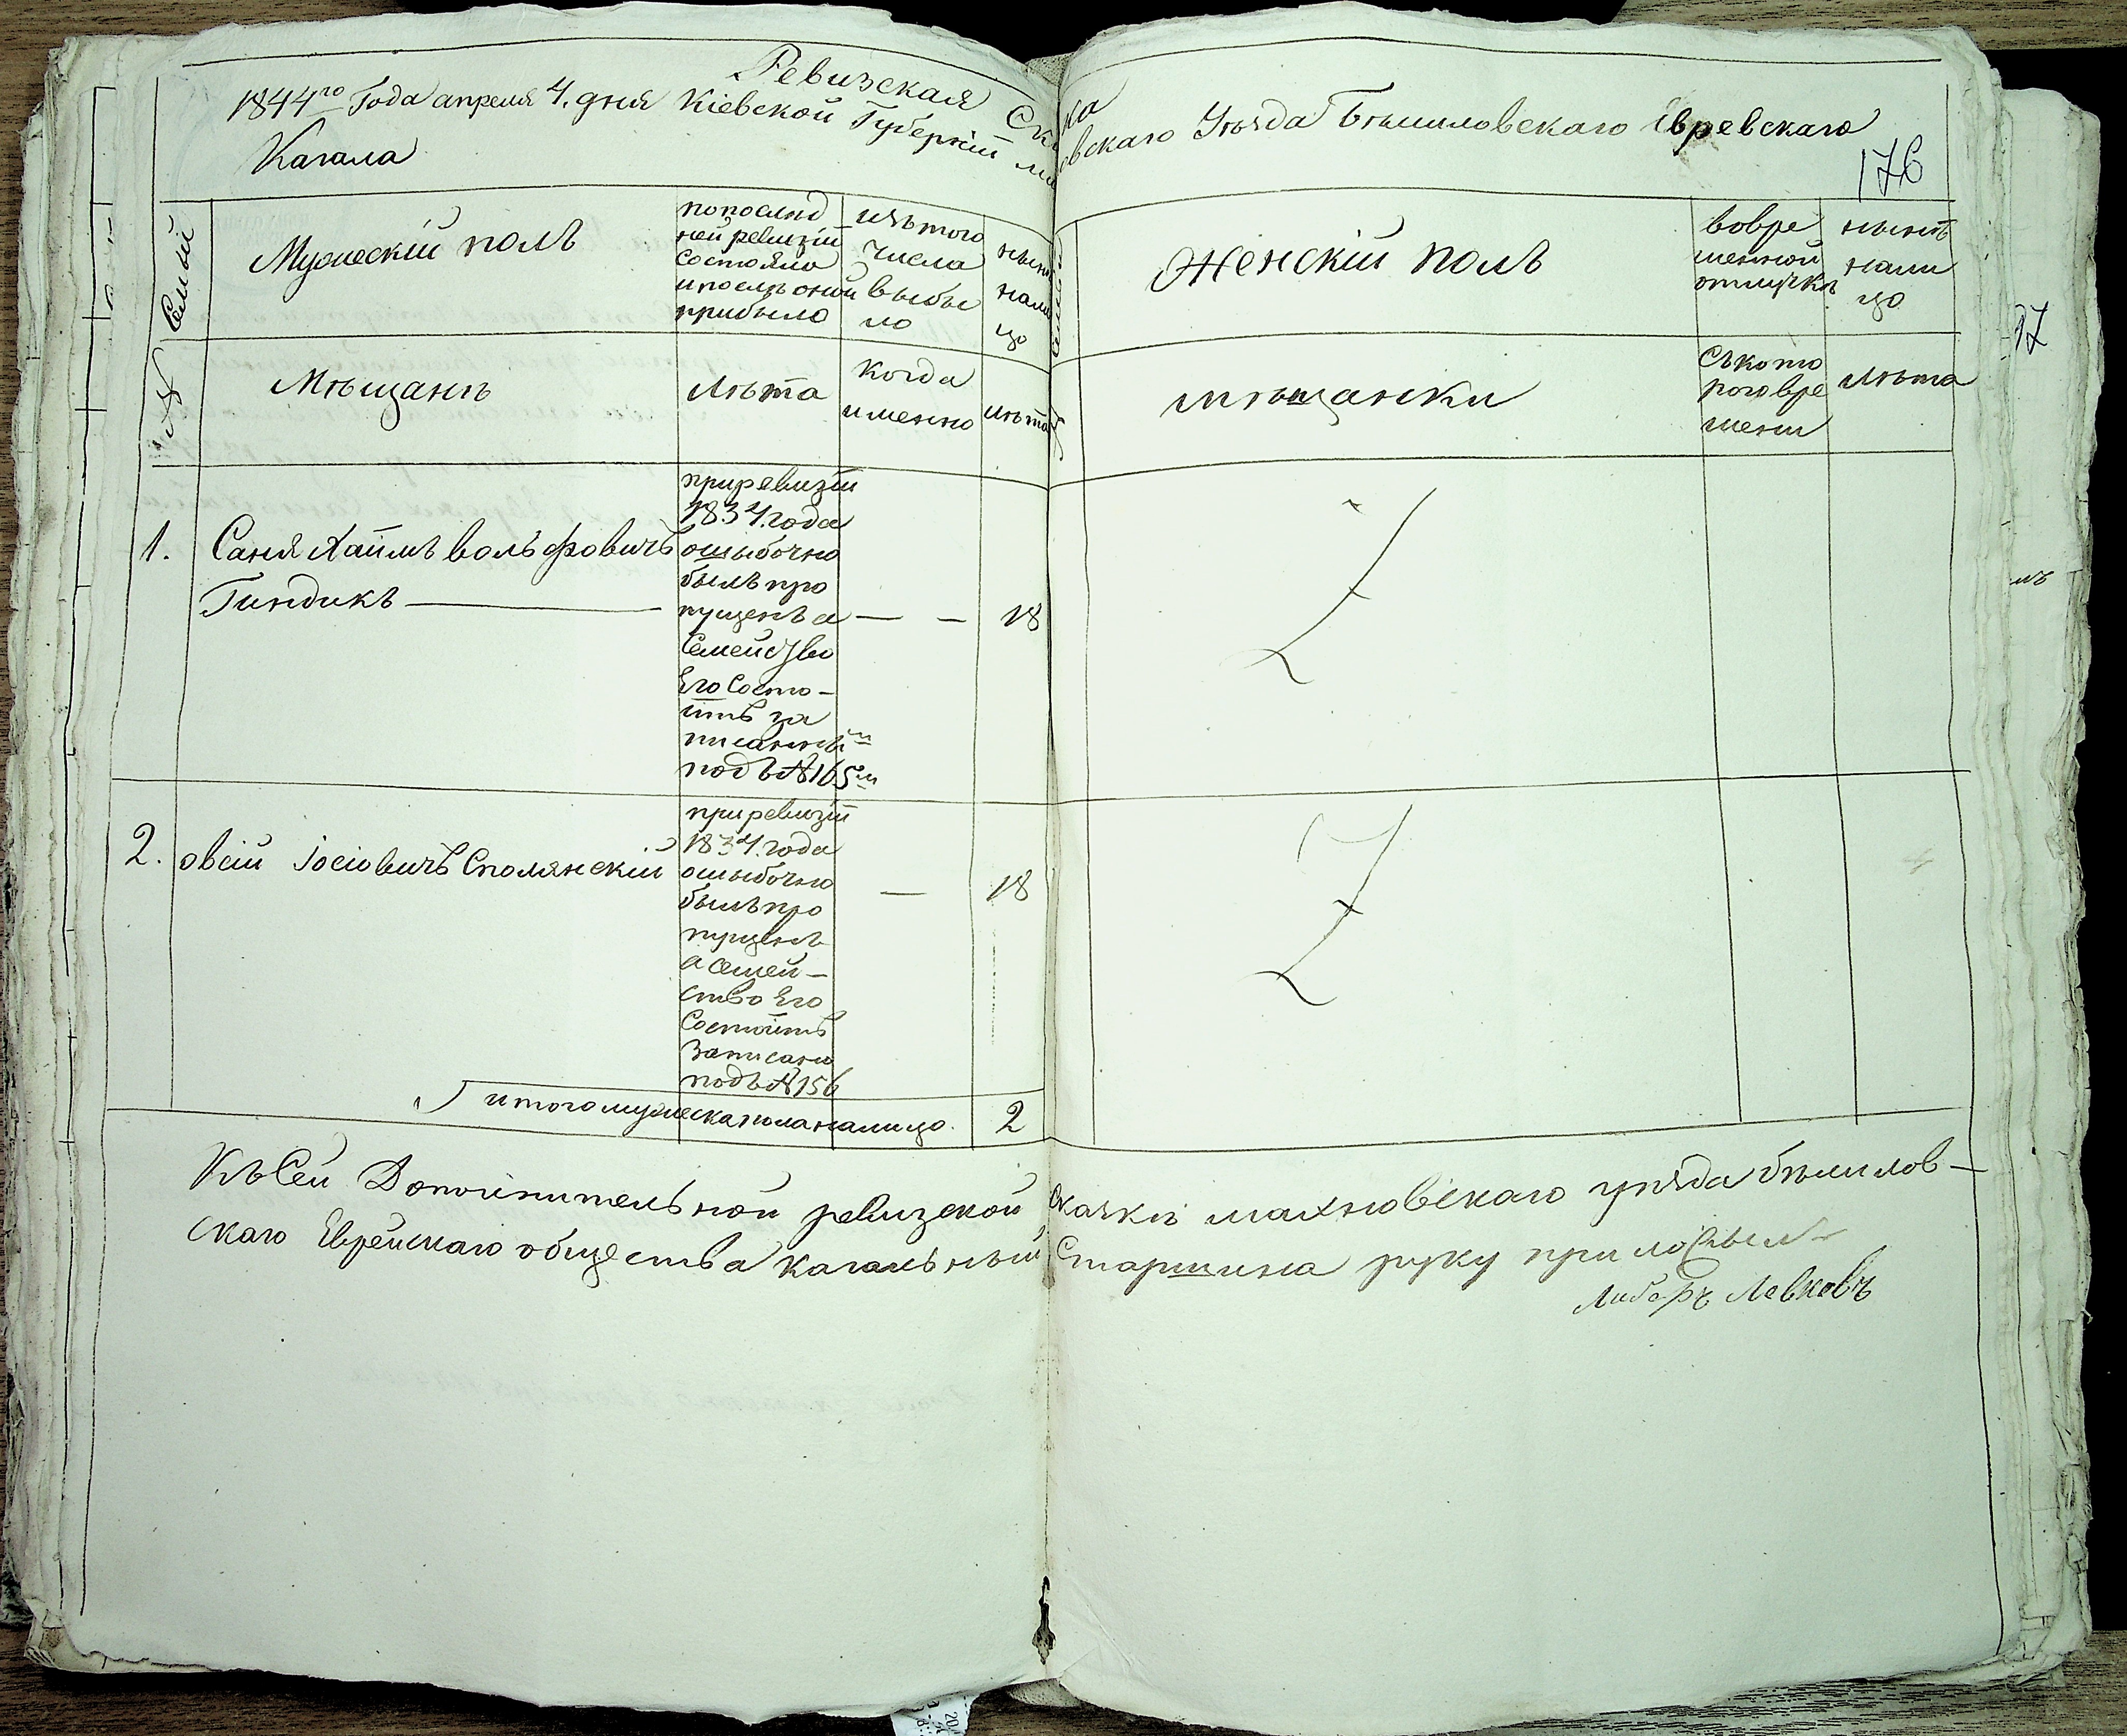 Ревизская Ска
1844го Года апреля 4. дня Кіевской Губерніи ма
вскаго Уѣзда Бѣлиловскаго Евревскаго
Кагала
176
№ Семьи
Мужескій полъ
попослѣд
ней ревизіи
состояло
и послѣ оной
прибыло
изътого
числа
выбы
ло
нынѣ
нали
цо
Женскій полъ
вовре
менной
отлучкѣ
нынѣ
нали
цо
Мѣщанъ
Лѣта
когда
именно
Лѣта
мѣщанки
Съкото
поговре
мени
Лѣта
1. Саня Хаимъ Вольфовичъ
Гиндикъ
приревизіи
1834. года
ошыбочно
былъ про
пущенъ а
Семейство
Его Состо-
итъ за
писаннымъ
подъ №165м
— — 18
2. овсій Іосіовичъ Сполянскій
приревизіи
1834. года
ошыбочно
былъ про
пущенъ
а семей-
ство Его
Состоитъ
Записано
подъ №156
— 18
итого мужеска пола налицо. 2
Къ Сей Дополнительной ревизской Сказки махновскаго уѣзда бѣлилов-
скаго Еврейскаго общества кагальный Старшина руку приложылъ
Левковъ
17